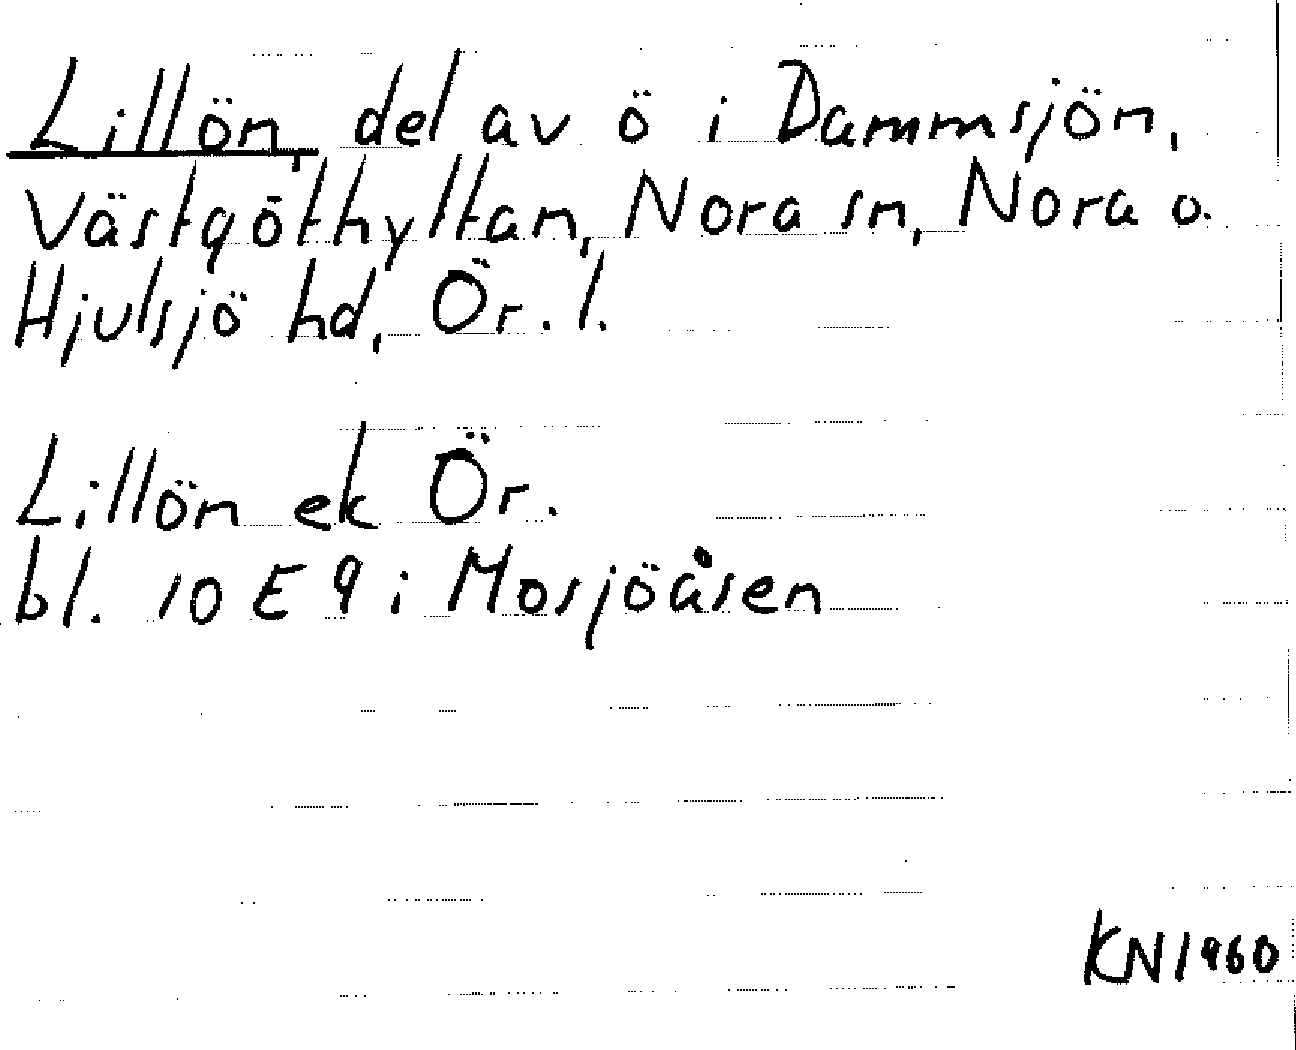 Lillön, del av ö i Dammsjön,
Västgöthyltan, Nora sn, Nora o.
Hjulsjö hd, Ör. l.
Lillön ek Ör.
bl. 10 E 9 i Mosjöåsen
KN 1960